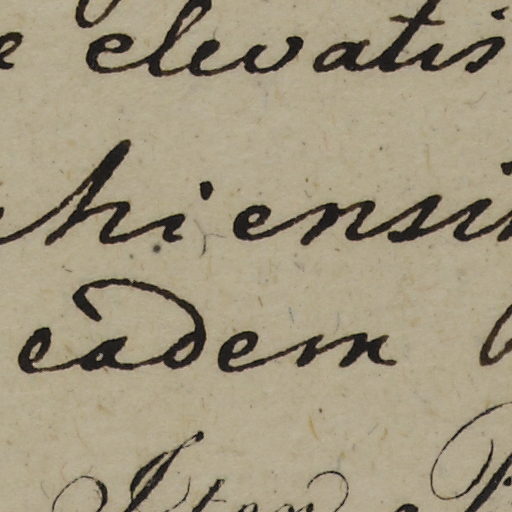 e elevatis
hiensi
eadem